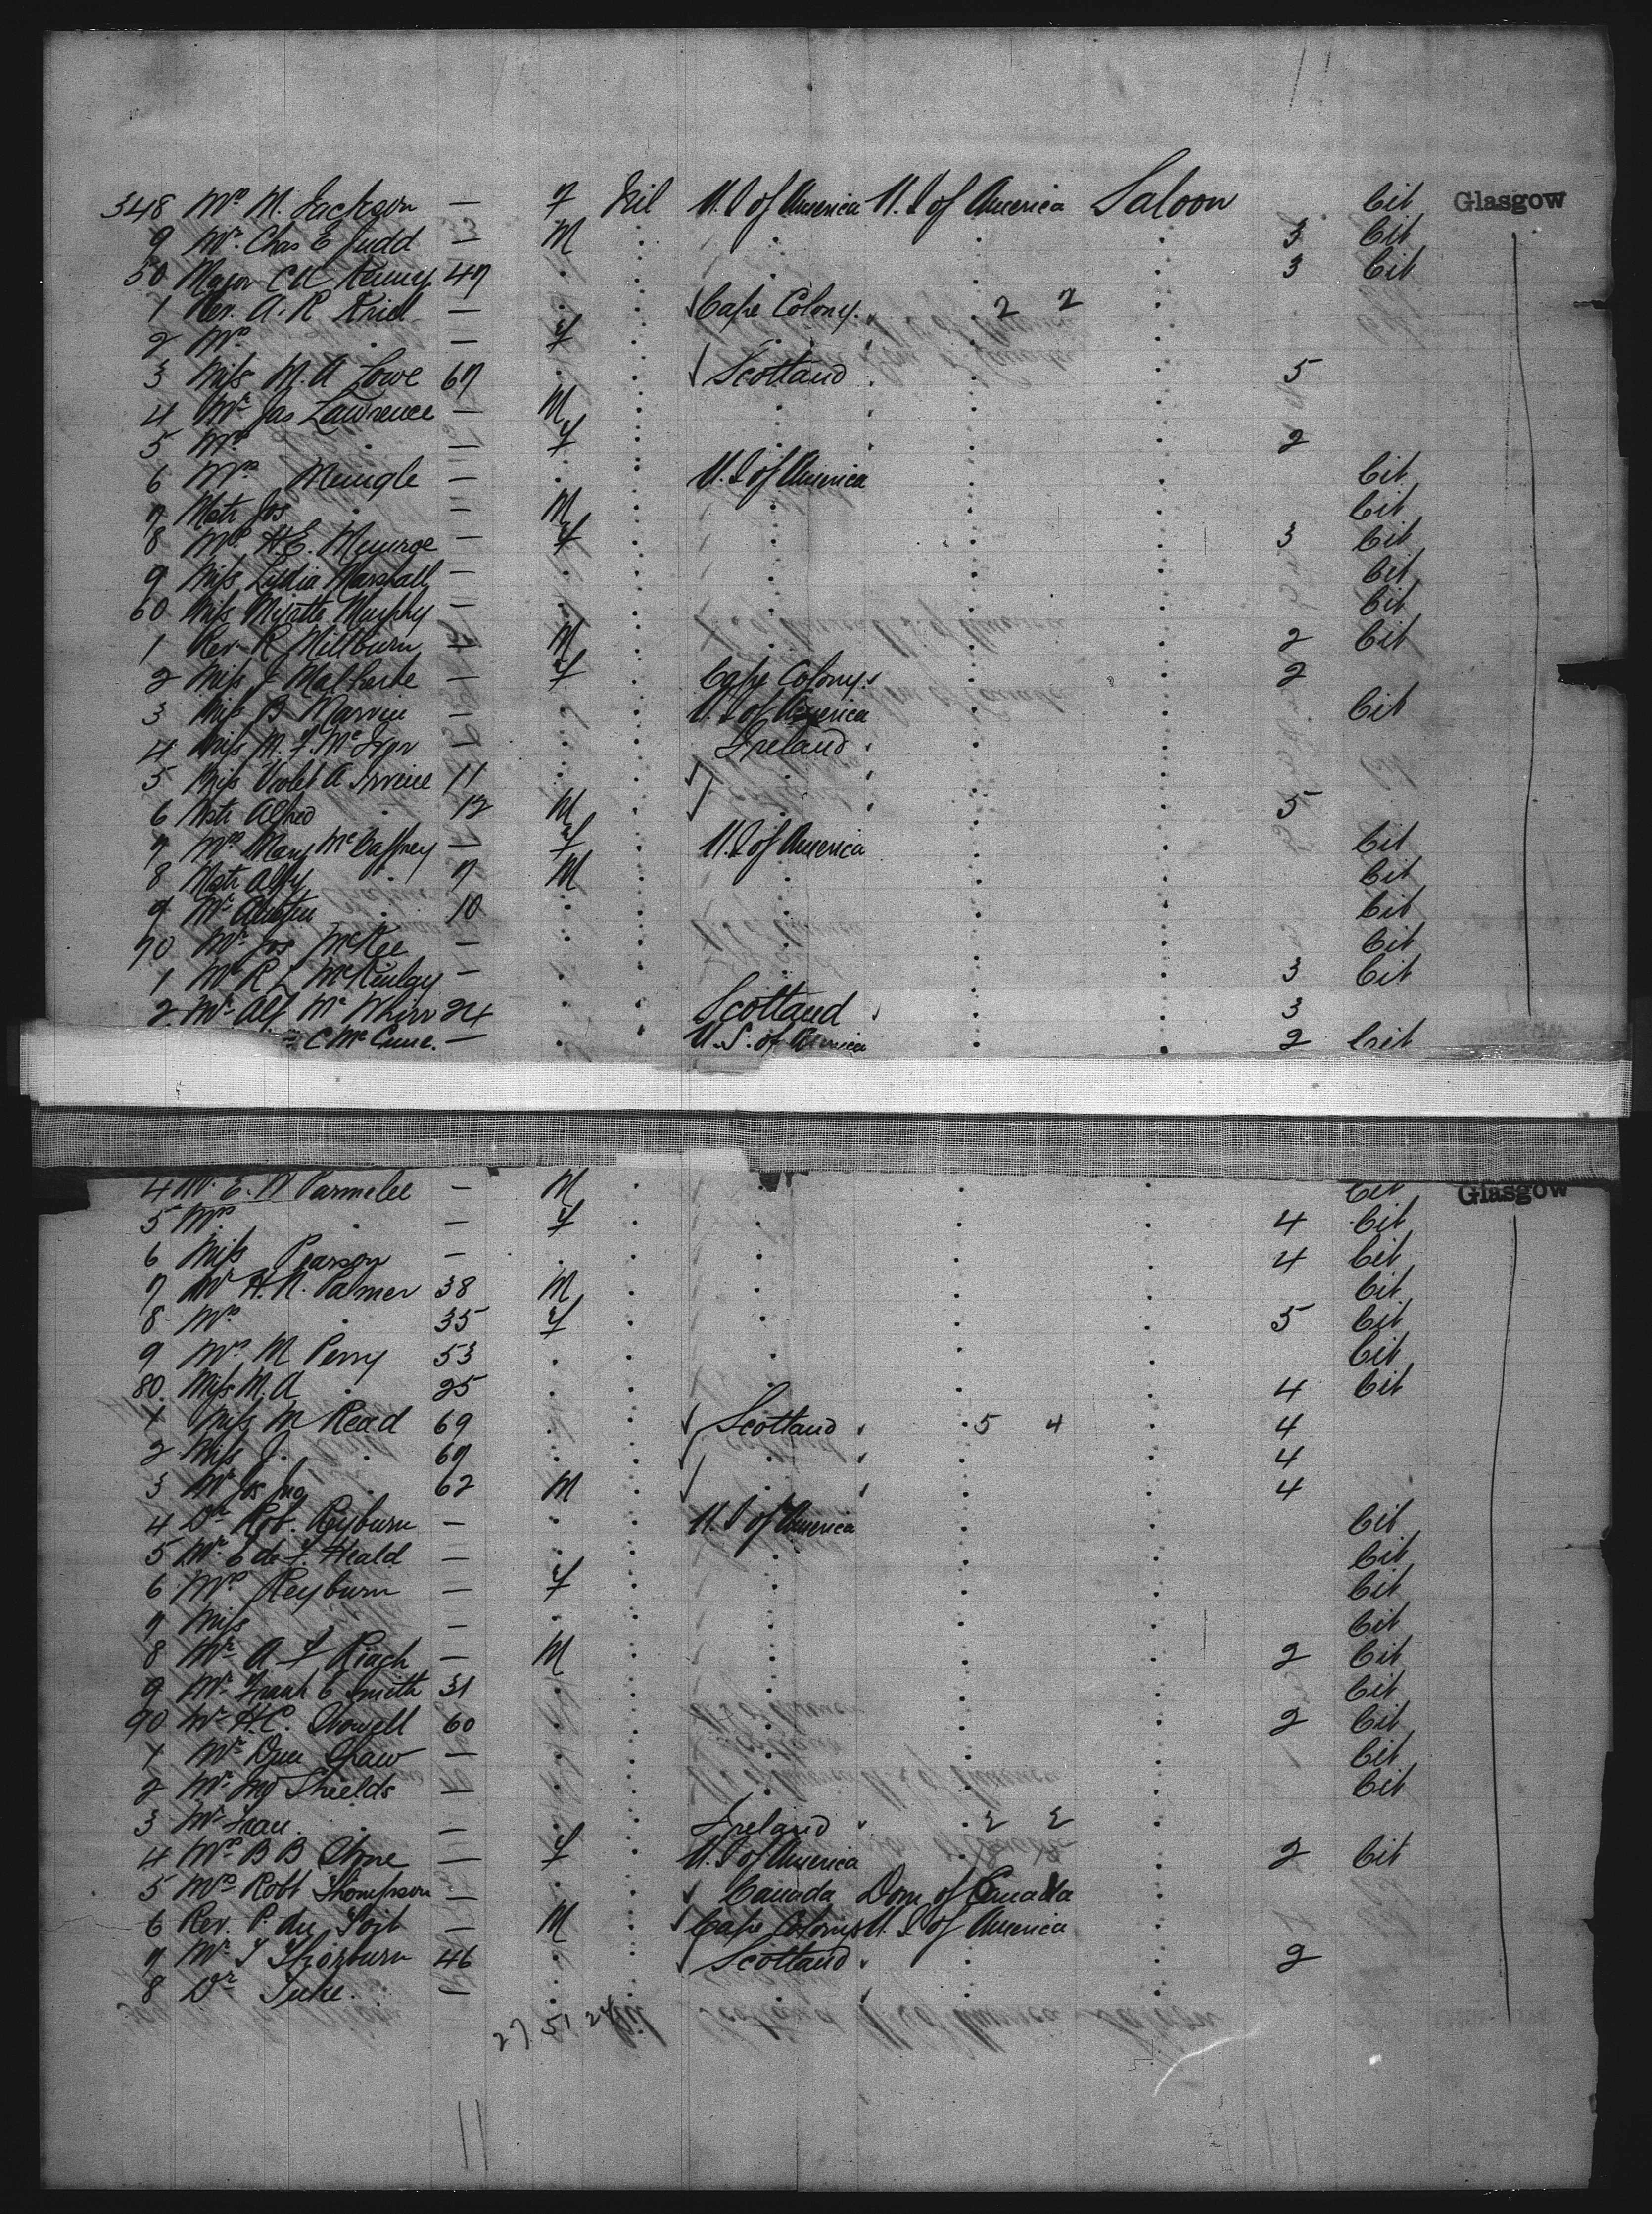 348 Mrs M. Jackson — F Nil U.S of America U.S of America Saloon Cit Glasgow
9 Mr. Chas E Judd — M . . . . 3 Cit
50 Major C W 47 . . . . . 3 Cit
1 Rev. A. R Kriel — . . Cape Colony. 2 2 .
2 Mrs . — F . . . .
3 Miss M. A Lowe 67 . . Scotland . . 5
4 Mr Jas Lawrence — M . . . .
5 Mrs . — F . . . . 2
6 Mrs Meingle — . . U.S of America . . Cit
7 Mstr Jos . — M . . . . Cit
8 Mrs H E. Munroe — F . . . . 3 Cit
9 Miss Lydia Marshall — . . . . . Cit
60 Miss Myrtle Murphy — . . . . . Cit
1 Rev. R Millburn — M . . . . 2 Cit
2 Miss J Malherbe — F . Cape Colony . . 2
3 Miss B Marvin — . . U.S of America . . Cit
4 Miss M. F. Mc — . . Ireland . .
5 Miss Violet A Irvine 11 . . . . .
6 Mstr Alfred . 12 M . . . . 5
7 Mrs Mary McCaffrey — F . U.S of America . . Cit
8 Mstr . 7 M . . . . Cit
9 Mr Austin . 10 . . . . . Cit
70 Mr Jos McKee — . . . . . Cit
1 Mr R L McKinlay — . . . . . 3 Cit
2 Mr Alf McWhirr 24 . . Scotland . . 3
C McCune. — . U.S. of America . . 2 Cit
4 Mr. E. W Parmelee — M . . . . Cit Glasgow
5 Mrs . — F . . . . 4 Cit
6 Miss Pearson — . . . . . 4 Cit
7 Mr H. N. Palmer 38 M . . . . Cit
8 Mrs . 35 F . . . . 5 Cit
9 Mrs M Perry 53 . . . . . Cit
80. Miss M. A . 25 . . . . . 4 Cit
1 Miss M Read 69 . . Scotland 5 4 . 4
2 Miss J. . 67 . . . . . 4
3 Mr Jas Jno . 62 M . . . . 4
4 Dr Rob. Reyburn — . . U.S of America . . Cit
5 Mr. C de F. Heald — . . . . . Cit
6 Mrs Reyburn — F . . . . Cit
7 Miss . — . . . . . Cit
8 Mr A F Riach — M . . . . 2 Cit
9 Mr Frank C Smith 31 . . . . . Cit
90 Mr H.C. Showell 60 . . . . . 2 Cit
1 Mr Shaw — . . . . . Cit
2 Mr Jno Shields — . . . . . Cit
3 Mr Fran. . — . . Ireland 2 2 .
4 Mrs B B Stone — F . U.S of America . . 2 Cit
5 Mrs Robt Thompson — . . Canada Dom of Canada .
6 Rev. P. du Toit — M . Cape Colony U.S of America .
7 Mr T Thorburn 46 . . Scotland . . 2
8 Dr Tuke. — . . . . .
27 51 24